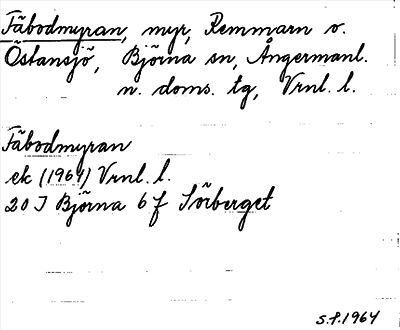 Fäbodmyran, myr, Remmarn o.
Östansjö, Björna sn, Ångermanl.
n. doms. tg, Vrnl. l.
Fäbodmyran
ek (1964) Vrnl. l.
20 I Björna 6 f Sörberget
S.P.1964